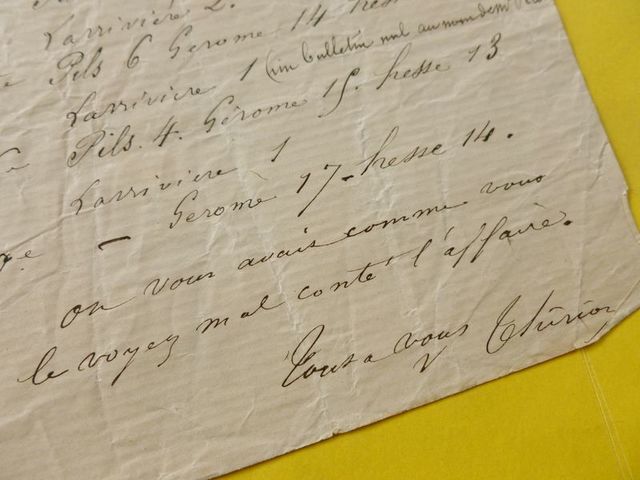 Larrivière 2.
Pils 6 Gerome 14 hesse
Larrivière 1 (un bulletin nul au nom de
Pils. 4. Gérome 15. hesse 13
Larrivière 1
- Gerome 17 - hesse 14.
on vous avait comme vous
le voyez mal conté l'affaire.
Tout a vous